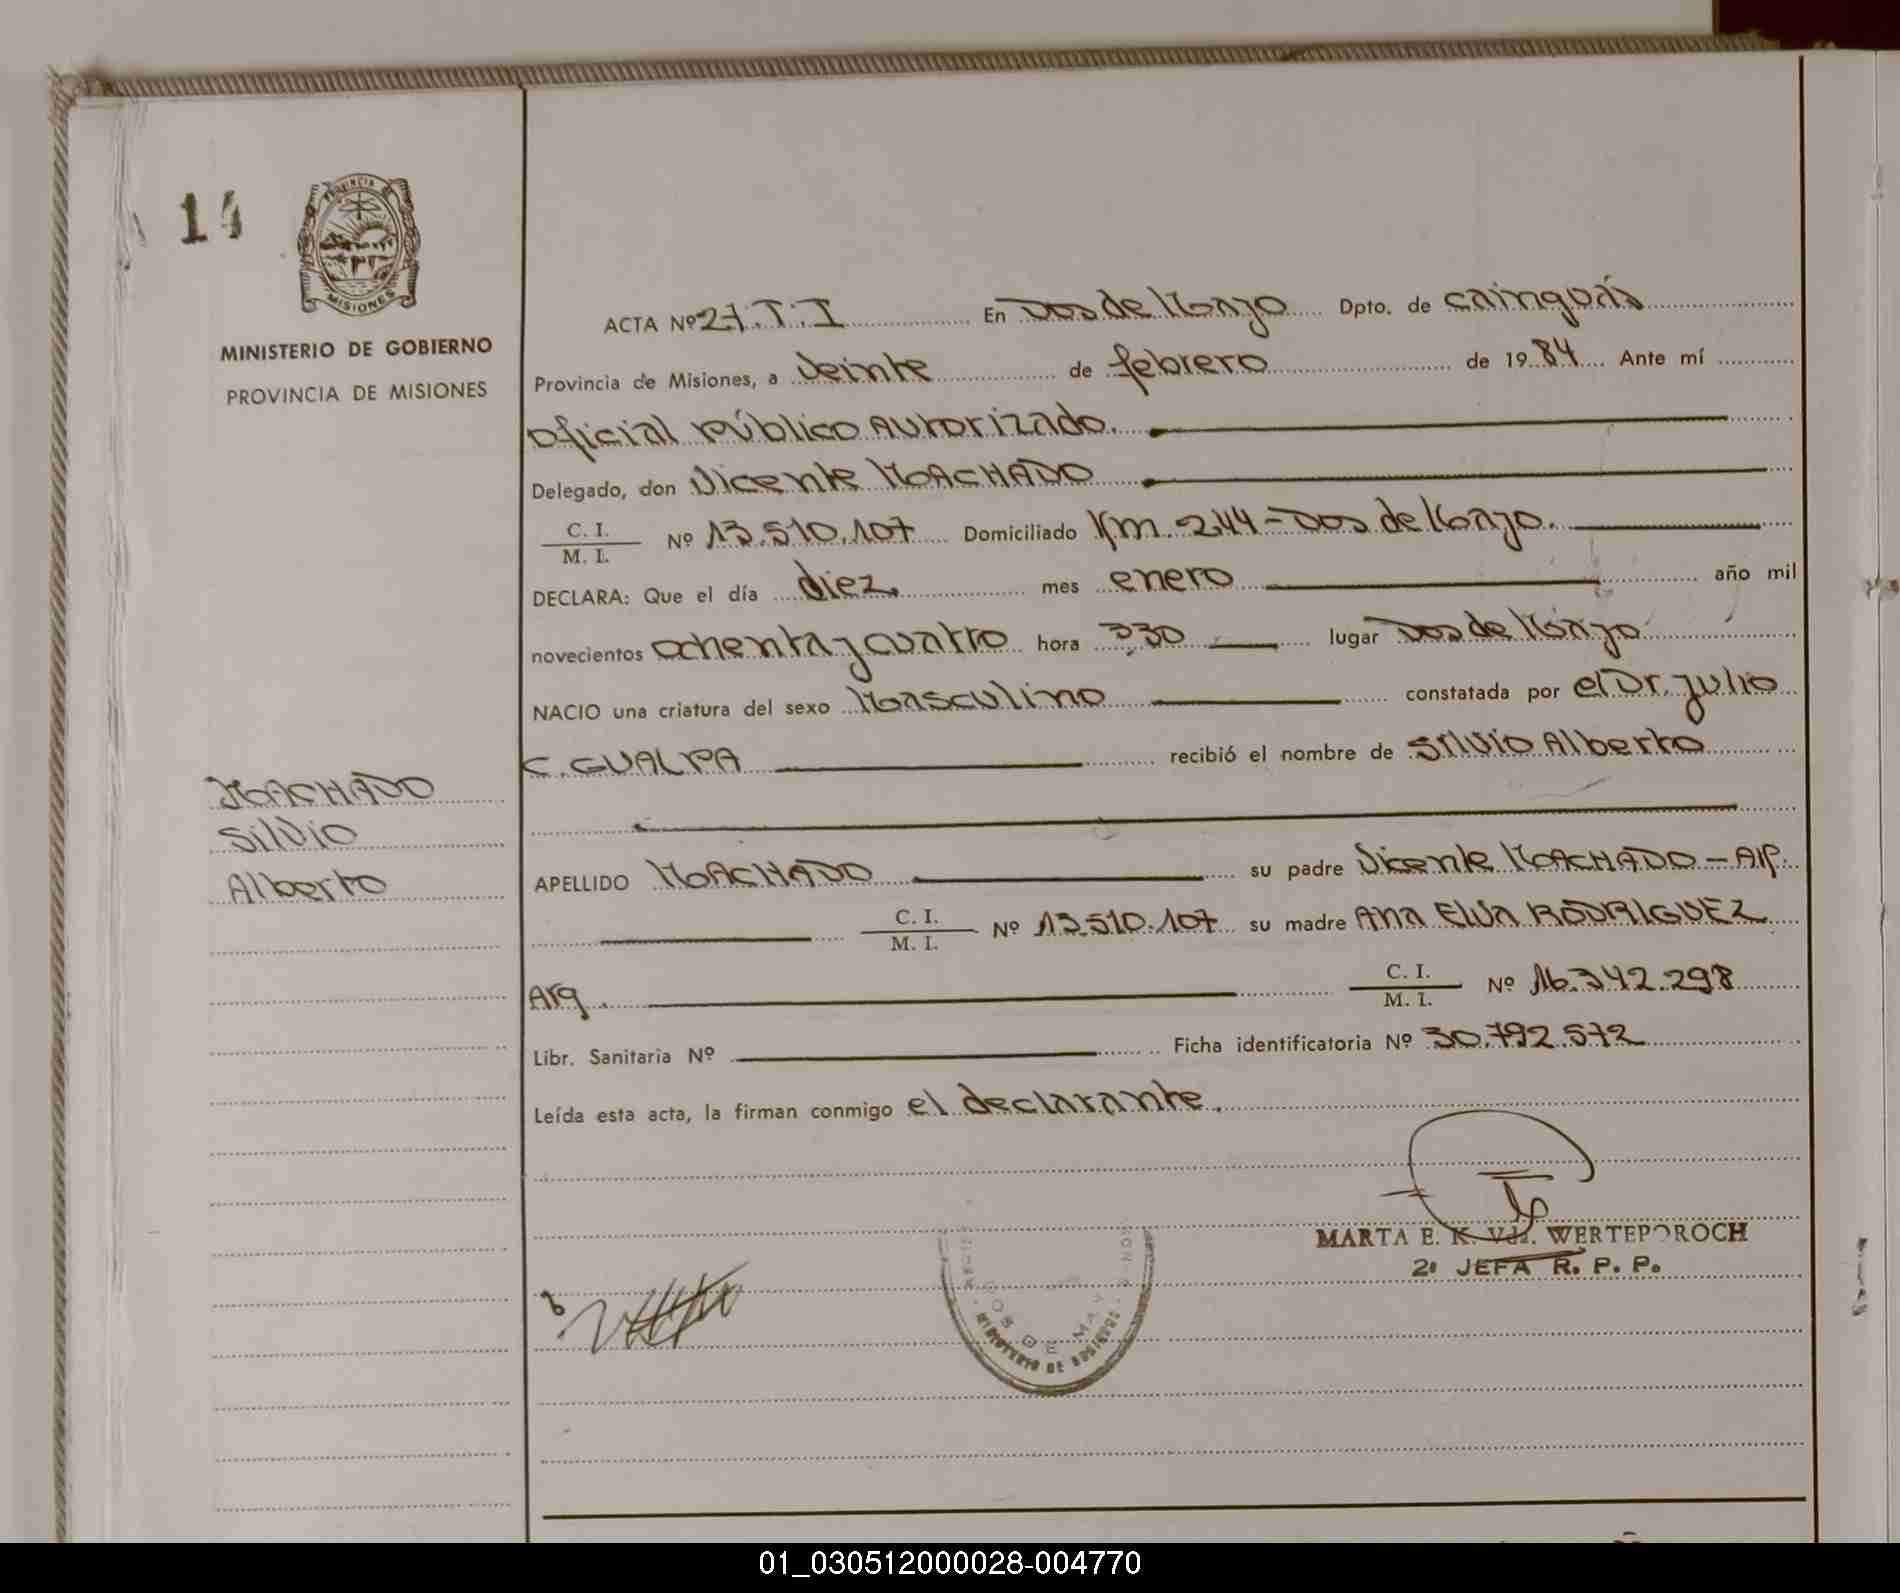 14
PROVINCIA DE
MISIONES
MINISTERIO DE GOBIERNO
PROVINCIA DE MISIONES
ACTA Nº 27.T.I En Dos de Mayo Dpto. de Cainguás
Provincia de Misiones, a Veinte de febrero de 1984 Ante mí
Oficial Público Autorizado.
Delegado, don Vicente MACHADO
C. I.
M. I. Nº 13.510.107 Domiciliado Km. 244 - Dos de Mayo.
DECLARA: Que el día diez mes enero año mil
novecientos ochenta y cuatro hora 330 lugar Dos de Mayo
NACIO una criatura del sexo Masculino constatada por el Dr. Julio
C. GUALPA recibió el nombre de Silvio Alberto
MACHADO
Silvio
Alberto
APELLIDO MACHADO su padre Vicente MACHADO - Arg.
C. I.
M. I. Nº 13.510.107 su madre Ana Elva RODRIGUEZ
Arg. C. I.
M. I. Nº 16.342.298
Libr. Sanitaria Nº Ficha identificatoria Nº 30.792.572
Leída esta acta, la firman conmigo el declarante.
MARTA E. K. Vda. WERTEPOROCH
2º JEFA R. P. P.
DOS DE MAYO
MINISTERIO DE GOBIERNO
01_030512000028-004770